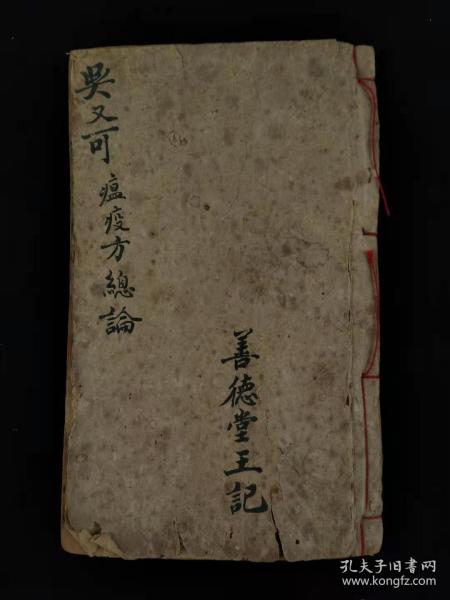 吳又可瘟疫方總論
善德堂王記
孔夫子旧书网
www.kongfz.com